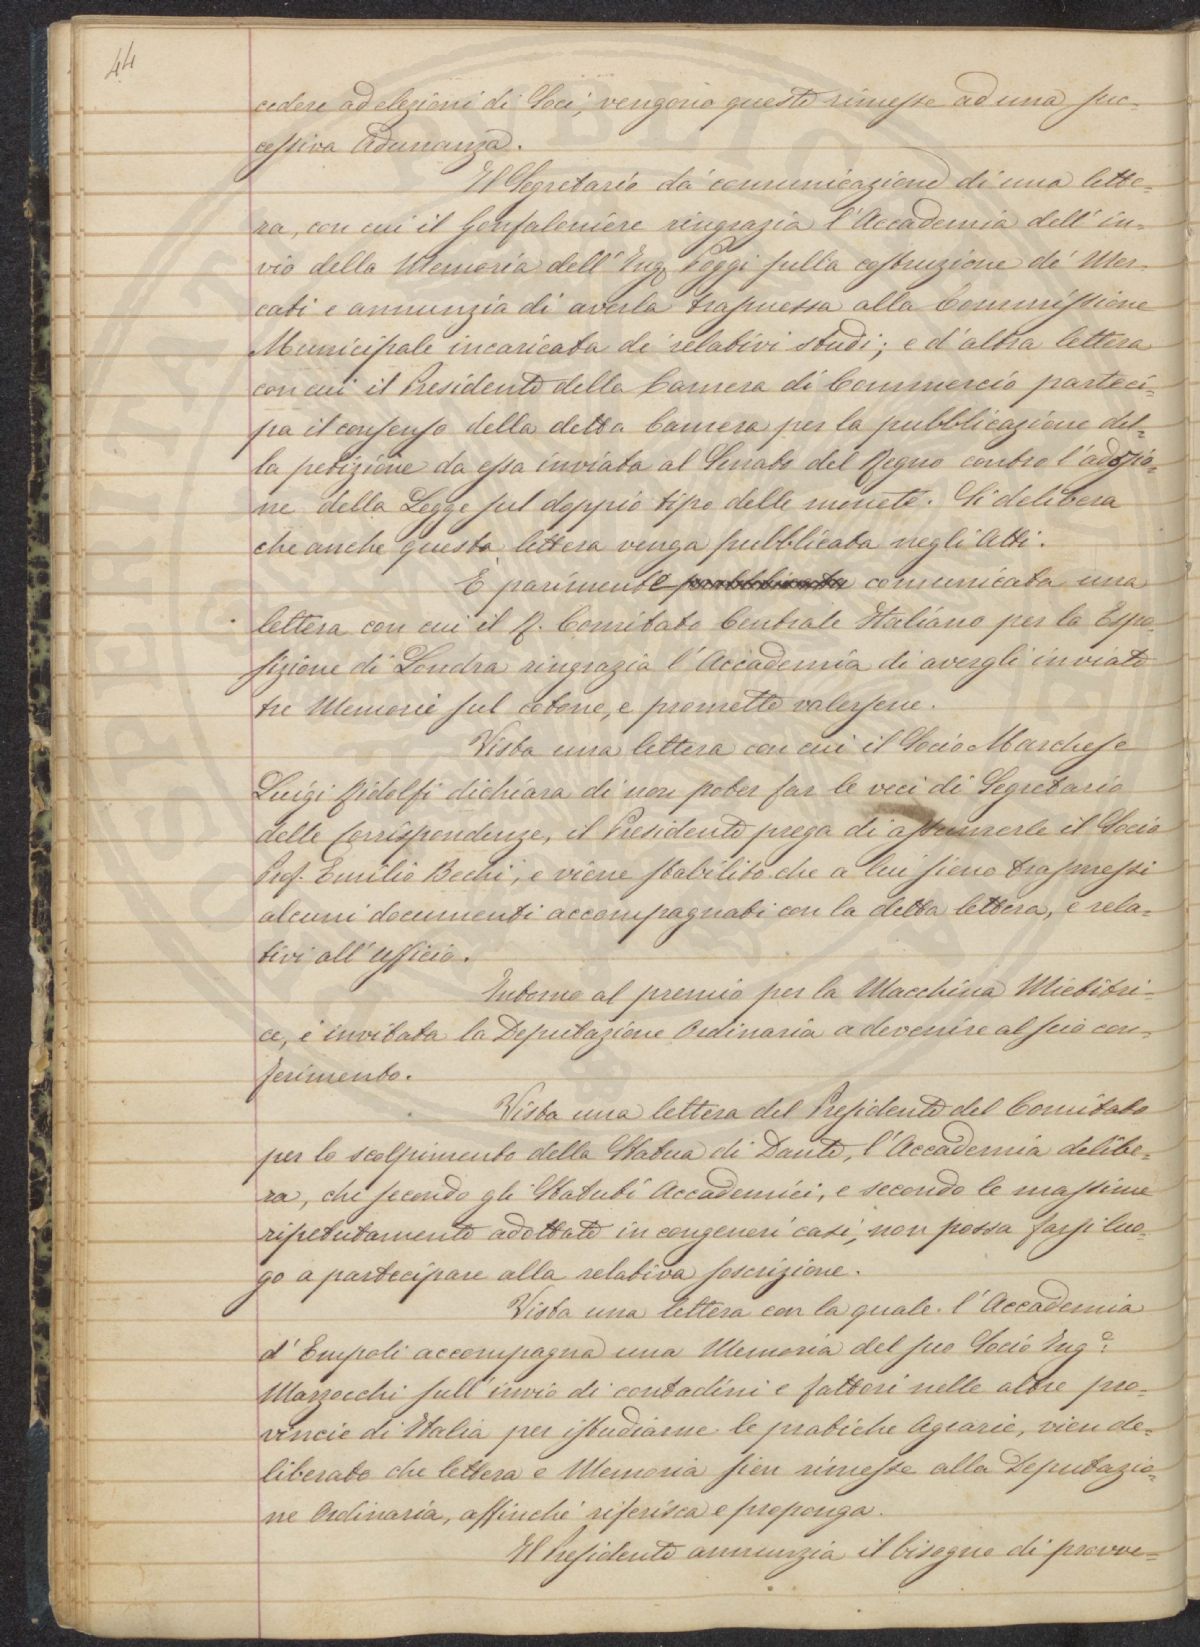 44
cedere ad elezioni di Soci, vengono queste rimesse ad una suc-
cessiva Adunanza.
Il Segretario dà comunicazione di una lette-
ra, con cui il Gonfaloniere ringrazia l'Accademia dell' in-
vio della Memoria dell' Ing. Poggi sulla costruzione de' Mer-
cati e annunzia di averla trasmessa alla Commissione
Municipale incaricata de' relativi studi; e d'altra lettera
con cui il Presidente della Camera di Commercio parteci-
pa il consenso della detta Camera per la pubblicazione del-
la petizione da essa inviata al Senato del Regno contro l'adozio-
ne della Legge sul doppio tipo delle monete. Si delibera
che anche questa lettera venga pubblicata negli Atti.
È parimente pubblicata comunicata una
lettera con cui il R. Comitato Centrale Italiano per la Espo-
sizione di Londra ringrazia l'Accademia di avergli inviate
tre Memorie sul cotone, e promette valersene.
Vista una lettera con cui il Socio Marchese
Luigi Ridolfi dichiara di non poter far le veci di Segretario
delle Corrispondenze, il Presidente prega di assumerle il Socio
Prof. Emilio Bechi, e viene stabilito che a lui sieno trasmessi
alcuni documenti accompagnati con la detta lettera, e rela-
tivi all' ufficio.
Intorno al premio per la Macchina Mietitri-
ce, è invitata la Deputazione Ordinaria a devenire al suo con-
ferimento.
Vista una lettera del Presidente del Comitato
per lo scolpimento della Statua di Dante, l'Accademia delibe-
ra, che secondo gli Statuti Accademici, e secondo le massime
ripetutamente adottate in congeneri casi, non possa farsi luo-
go a partecipare alla relativa soscrizione.
Vista una lettera con la quale l'Accademia
d'Empoli accompagna una Memoria del suo Socio Ing.e
Marzocchi sull' invio di contadini e fattori nelle altre pro-
vincie di Italia per istudiarne le pratiche Agrarie, vien de-
liberato che lettera e Memoria sien rimesse alla Deputazio-
ne Ordinaria, affinchè riferisca e proponga.
Il Presidente annunzia il bisogno di provve-